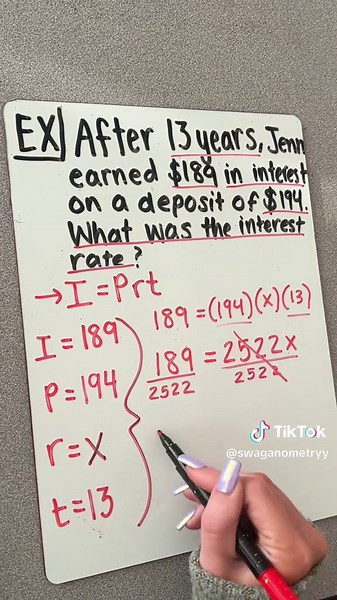 EX After 13 years, Jenn
earned $189 in interest
on a deposit of $194.
What was the interest
rate?
→ I = Prt
I = 189
P = 194
r = X
t = 13
189 = (194)(x)(13)
189 = 2522x
2522 2522
TikTok
@swaganometryy